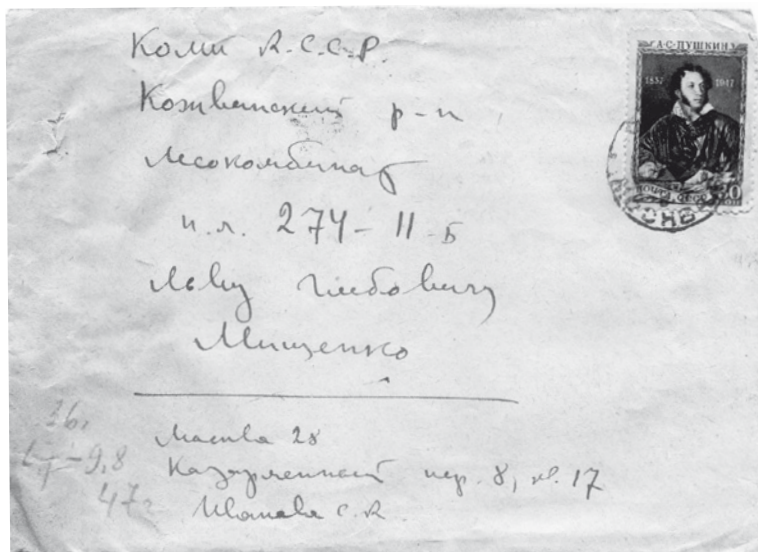 Коми А.С.С.Р.
Кожвинский р-н
Лесокомбинат
п.л. 274-11-Б
Льву Глебовичу
Мищенко
Москва 28
Казарменный пер. 8, кв. 17
Иванова С.А.
А·С·ПУШКИН
1837 1947
ПОЧТА СССР
9,8
47г